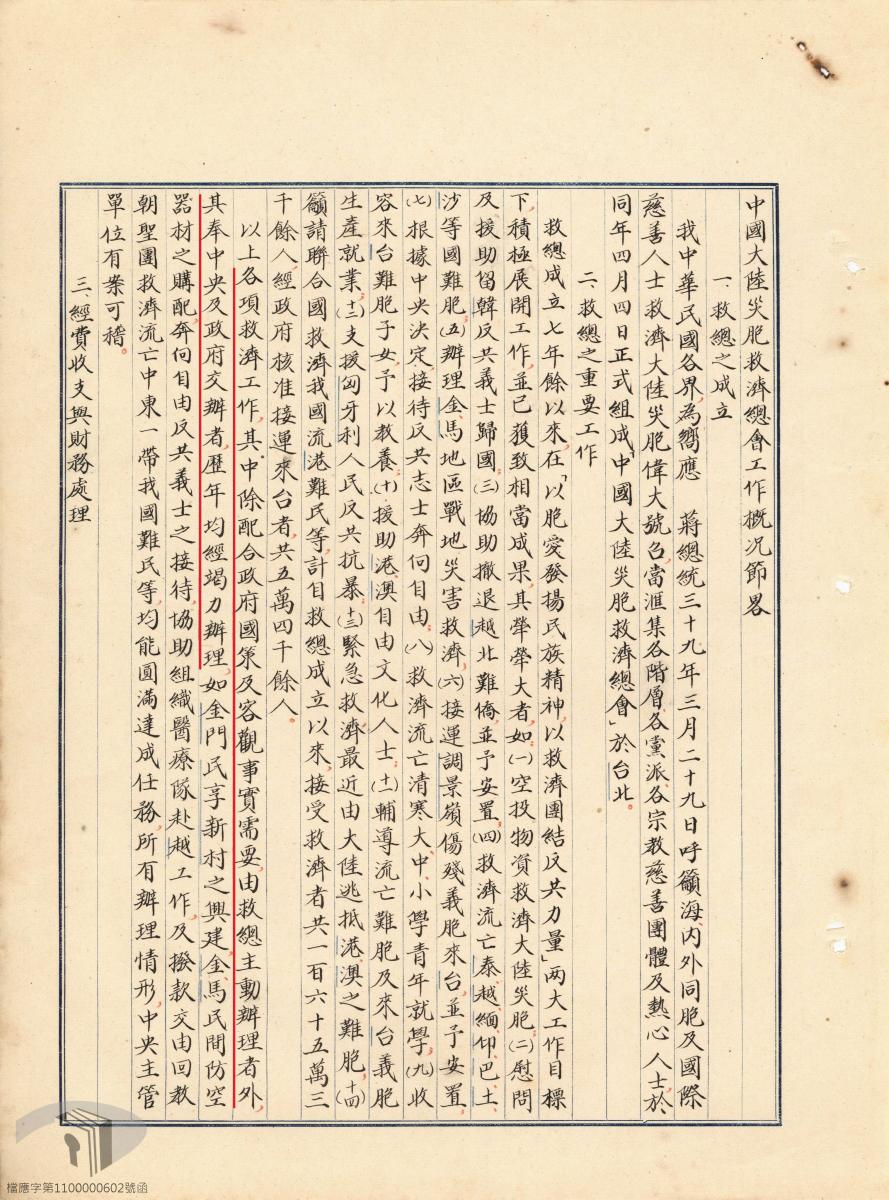 中國大陸災胞救濟總會工作概況節略
一、救總之成立
我中華民國各界,為嚮應　蔣總統三十九年三月二十九日呼籲海、內外同胞及國際
慈善人士救濟大陸災胞偉大號召,當滙集各階層、各黨派、各宗教慈善團體及熱心人士,於
同年四月四日正式組成「中國大陸災胞救濟總會」於台北。
二、救總之重要工作
救總成立七年餘以來,在「以胞愛發揚民族精神,以救濟團結反共力量」兩大工作目標
下,積極展開工作,並已獲致相當成果,其犖犖大者,如:(一)空投物資救濟大陸災胞;(二)慰問
及援助留韓反共義士歸國;(三)協助撤退越北難僑,並予安置;(四)救濟流亡泰、越、緬、印、巴、土、
沙等國難胞;(五)辦理金、馬地區戰地災害救濟;(六)接運調景嶺傷殘義胞來台,並予安置;
(七)根據中央決定,接待反共志士奔向自由;(八)救濟流亡清寒大、中、小學青年就學;(九)收
容來台難胞子女,予以教養;(十)援助港、澳自由文化人士;(十一)輔導流亡難胞及來台義胞
生產就業;(十二)支援匈牙利人民反共抗暴;(十三)緊急救濟最近由大陸逃抵港、澳之難胞;(十四)
籲請聯合國救濟我國流港難民等,計自救總成立以來,接受救濟者共一百六十五萬三
千餘人,經政府核准接運來台者,共五萬四千餘人。
以上各項救濟工作,其中除配合政府國策及客觀事實需要,由救總主動辦理者外,
其奉中央及政府交辦者,歷年均經竭力辦理,如金門民享新村之興建,金、馬民間防空
器材之購配,奔向自由反共義士之接待,協助組織醫療隊赴越工作,及撥款交由回教
朝聖團救濟流亡中東一帶我國難民等,均能圓滿達成任務,所有辦理情形,中央主管
單位有案可稽。
三、經費收支與財務處理
檔應字第1100000602號函